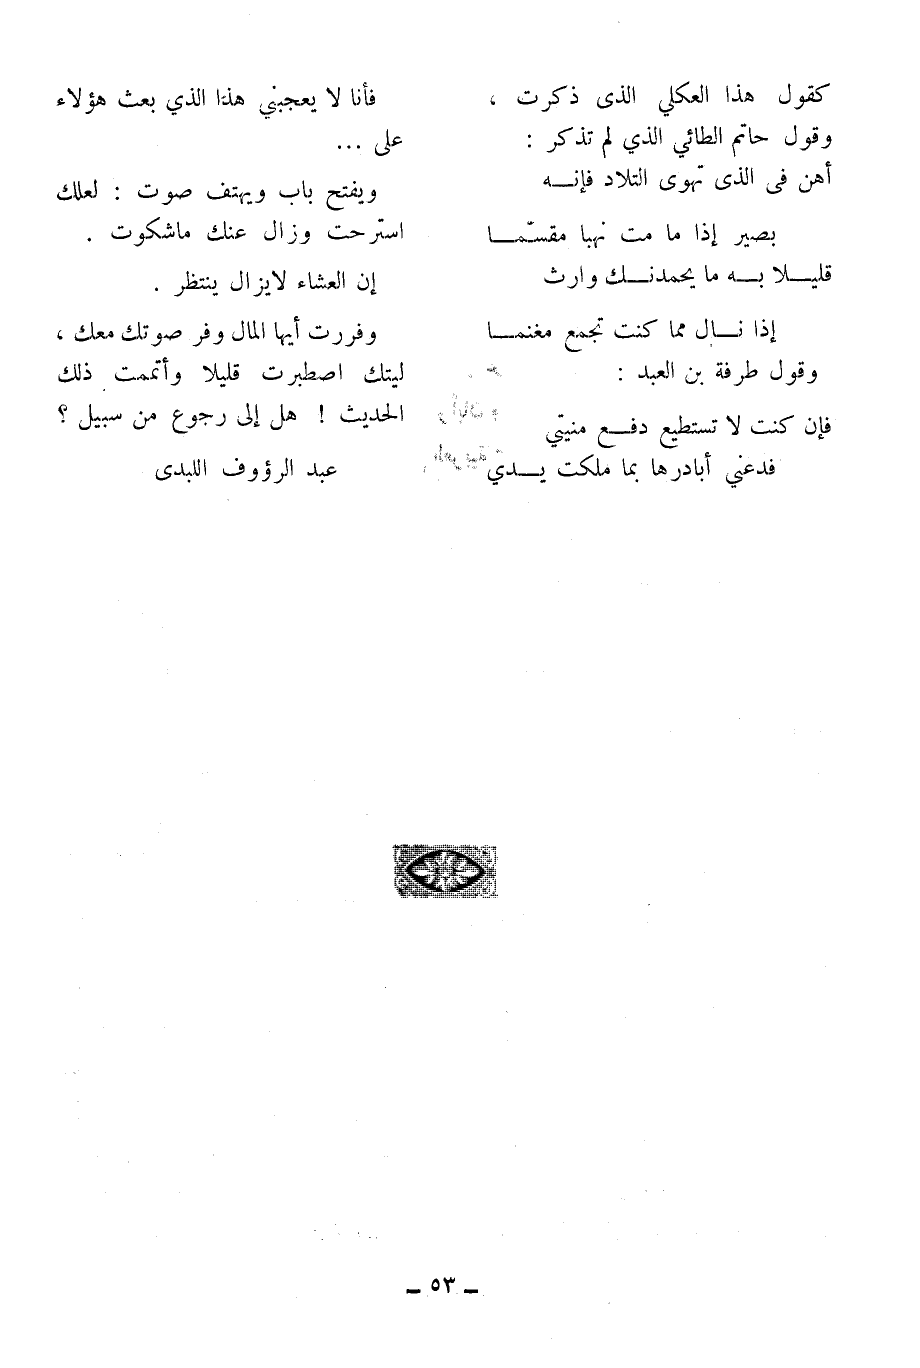 كقول هذا العكلي الذى ذكرت ،
وقول حاتم الطائي الذي لم تذكر :
أهن فى الذى تهوى التلاد فإنـــه
يصير إذا ما مت نهبا مقسّمـــا
قليـــلا بـــه ما يحمدنـــك وارث
إذا نـــال مما كنت تجمع مغنمـــا
وقول طرفة بن العبد :
فإن كنت لا تستطيع دفـــع منيتي
فدعني أبادرها بما ملكت يـــدي
فأنا لا يعجبني هذا الذي بعث هؤلاء
على ...
ويفتح باب ويهتف صوت : لعلك
استرحت وزال عنك ماشكوت .
إن العشاء لايزال ينتظر .
وفررت أيها المال وفر صوتك معك ،
ليتك اصطبرت قليلا وأتممت ذلك
الحديث ! هل إلى رجوع من سبيل ؟
عبد الرؤوف اللبدى
ـ ٥٣ ـ